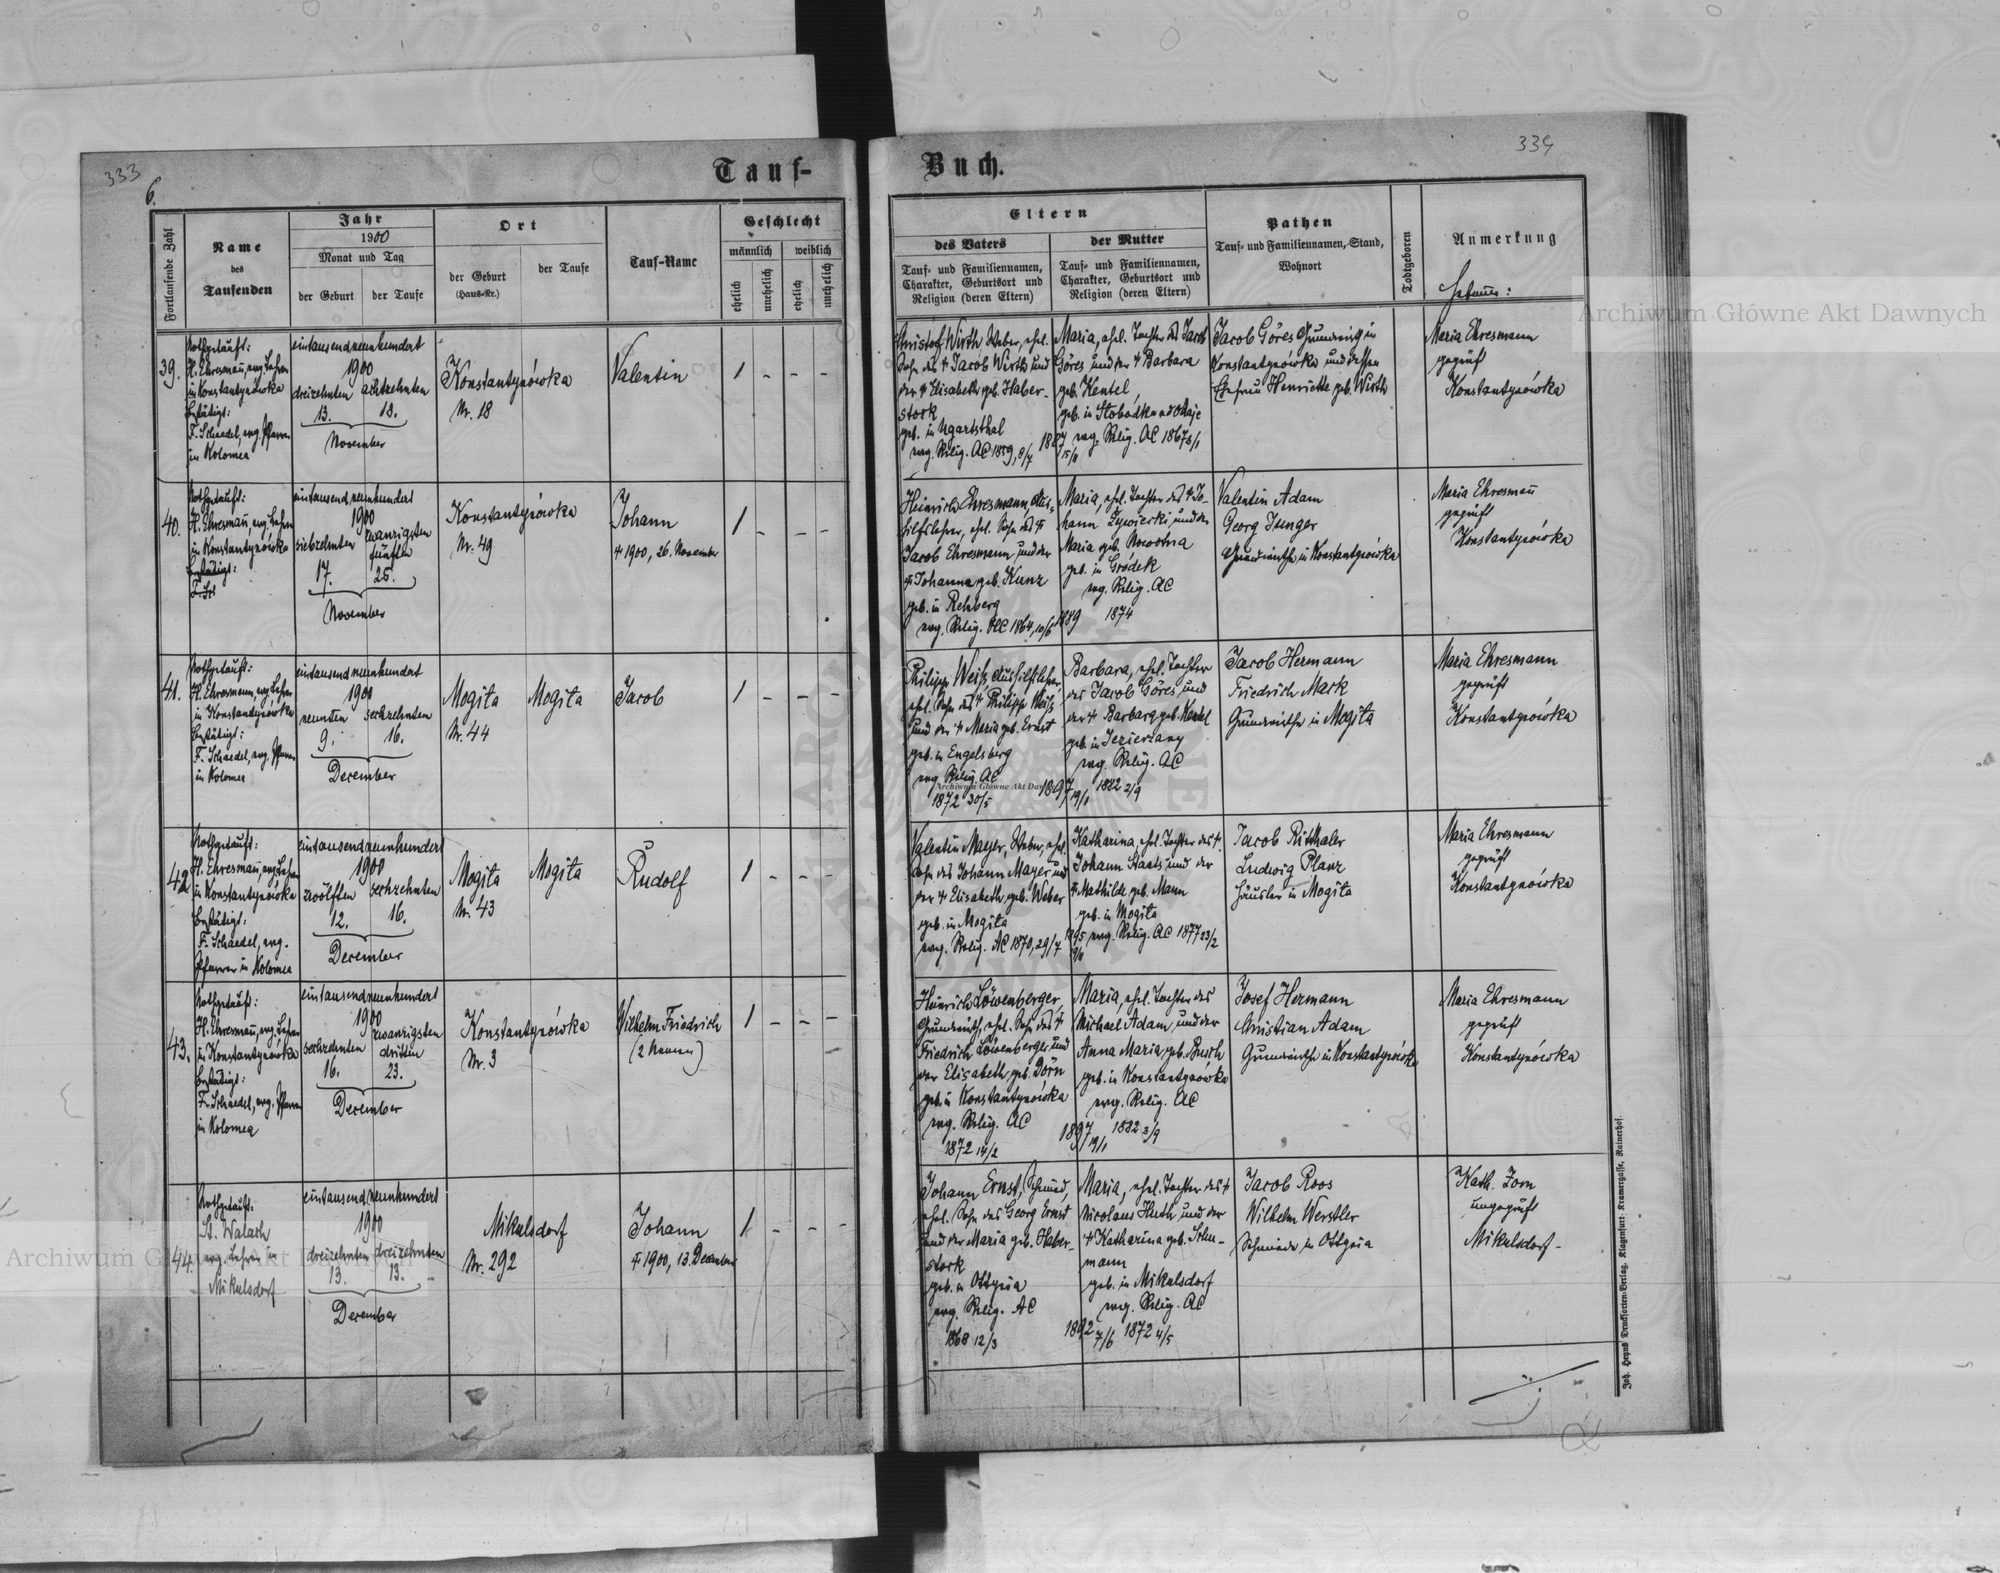 333
6.
Tauf-
Fortlaufende Zahl
Name
des
Taufenden
Jahr
1900
Monat und Tag
der Geburt
der Taufe
Ort
der Geburt
(Haus-Nr.)
der Taufe
Tauf-Name
Geschlecht
männlich
weiblich
ehelich
unehelich
ehelich
unehelich
39.
Nothgetauft:
H. Ehresmañ, evg. Lehrer
in Konstantynówka
bestätigt:
F. Schaedel, evg. Pfarrer
in Kolomea
eintausendneunhundert
1900
dreizehnten achtzehnten
13. 18.
November
Konstantynówka
Nr. 18
Valentin
1 - - -
40.
Nothgetauft:
H. Ehresmañ, evg. Lehrer
in Konstantynówka
bestätigt:
F. Sch
eintausendneunhundert
1900
siebzehnten zwanzigsten
fünften
17. 25.
November
Konstantynówka
Nr. 49
Johann
† 1900, 26. November
1 - - -
41.
Nothgetauft:
H. Ehresmann, evg. Lehrer
in Konstantynówka
bestätigt:
F. Schaedel, evg. Pfarrer
in Kolomea
eintausendneunhundert
1900
neunten sechzehnten
9. 16.
December
Mogita
Nr. 44
Mogita
Jacob
1 - - -
42
Nothgetauft:
H. Ehresmañ, evg. Lehrer
in Konstantynówka
bestätigt:
F. Schaedel, evg.
Pfarrer in Kolomea
eintausendneunhundert
1900
zwölften sechzehnten
12. 16.
December
Mogita
Nr. 43
Mogita
Rudolf
1 - - -
43.
Nothgetauft:
H. Ehresmañ, evg. Lehrer
in Konstantynówka
bestätigt:
F. Schaedel, evg. Pfarrer
in Kolomea
eintausendneunhundert
1900
sechzehnten zwanzigsten
dritten
16. 23.
December
Konstantynówka
Nr. 3
Wilhelm Friedrich
(2 Namen)
1 - - -
44.
Nothgetauft:
St. Walath
evg. Lehrer in
Mikulsdorf
eintausendneunhundert
1900
dreizehnten dreizehnten
13. 13.
December
Mikulsdorf
Nr. 292
Johann
† 1900, 13. December
1 - - -
Buch.
334
Eltern
des Vaters
Tauf- und Familiennamen,
Charakter, Geburtsort und
Religion (deren Eltern)
der Mutter
Tauf- und Familiennamen,
Charakter, Geburtsort und
Religion (deren Eltern)
Pathen
Tauf- und Familiennamen, Stand,
Wohnort
Todtgeboren
Anmerkung
Hebame:
Christof Wirth Weber, ehel.
Sohn des † Jacob Wirth und
der † Elisabeth geb. Haber-
stock
geb. in Ugartsthal
evg. Relig. AC 1859, 8/7
Maria, ehel. Tochter des Jacob
Göres und der † Barbara
geb. Kentel,
geb. in Slobodka
evg. Relig. AC 1867 3/1
Jacob Göres Grundwirth in
Konstantynówka und dessen
Ehefrau Henriette geb. Wirth
Maria Ehresmann
geprüft
Konstantynówka
Heinrich Ehresmann, Aus-
hilfslehrer, ehel. Sohn des †
Jacob Ehresmann und der
† Johanna geb. Kunz
geb. in Rehberg
evg. Relig. HC 1864, 10/6
1889
Maria, ehel. Tochter des † Jo-
hann Zywiecki und der
Maria geb. Nowotna
geb. in Gródek
evg. Relig. AC
1874
Valentin Adam
Georg Isinger
Grundwirthe in Konstantynówka
Maria Ehresmañ
geprüft
Konstantynówka
Philipp Weiß Aushilfslehrer,
ehel. Sohn des † Philipp Weiß
und der † Maria geb. Ernst
geb. in Engelsberg
evg. Relig. AC
1872 30/5
1897 19/1
Barbara, ehel. Tochter
des Jacob Göres und
der † Barbara geb. Kentel
geb. in Jezierzany
evg. Relig. AC
1882 2/9
Jacob Hermann
Friedrich Mark
Grundwirthe in Mogita
Maria Ehresmann
geprüft
Konstantynówka
Valentin Mayer, Weber, ehel.
Sohn des Johann Mayer und
der † Elisabeth, geb. Weber
geb. in Mogita
evg. Relig. AC 1870, 29/7
Katharina, ehel. Tochter des †
Johann Staats und der
† Mathilde geb. Mann
geb. in Mogita
1895 evg. Relig. AC 1877 23/2
Jacob Ritthaler
Ludwig Planz
Häusler in Mogita
Maria Ehresmann
geprüft
Konstantynówka
Heinrich Löwenberger,
Grundwirth, ehel. Sohn des †
Friedrich Löwenberger und
der Elisabeth geb. Dörn
geb. in Konstantynówka
evg. Relig. AC
1872 14/2
1897 19/1
Maria, ehel. Tochter des
Michael Adam und der
Anna Maria geb. Busch
geb. in Konstantynówka
evg. Relig. AC
1882 3/9
Josef Hermann
Christian Adam
Grundwirthe in Konstantynówka
Maria Ehresmann
geprüft
Konstantynówka
Johann Ernst, Schmied,
ehel. Sohn des Georg Ernst
und der Maria geb. Haber-
stock
geb. in Ottynia
evg. Relig. AC
1868 12/3
1892 7/6
Maria, ehel. Tochter des †
Nicolaus Huth und der
† Katharina geb. Schu-
mann
geb. in Mikulsdorf
evg. Relig. AC
1872 4/5
Jacob Roos
Wilhelm Werstler
Schmiede in Ottynia
Kath. Zorn
ungeprüft
Mikulsdorf-
Joh. Heyns Drucksorten-Verlag, Klagenfurt, Kramergasse, Rainerhof.
Archiwum Główne Akt Dawnych
Archiwum Główne Akt Dawnych
Archiwum Główne Akt Dawnych